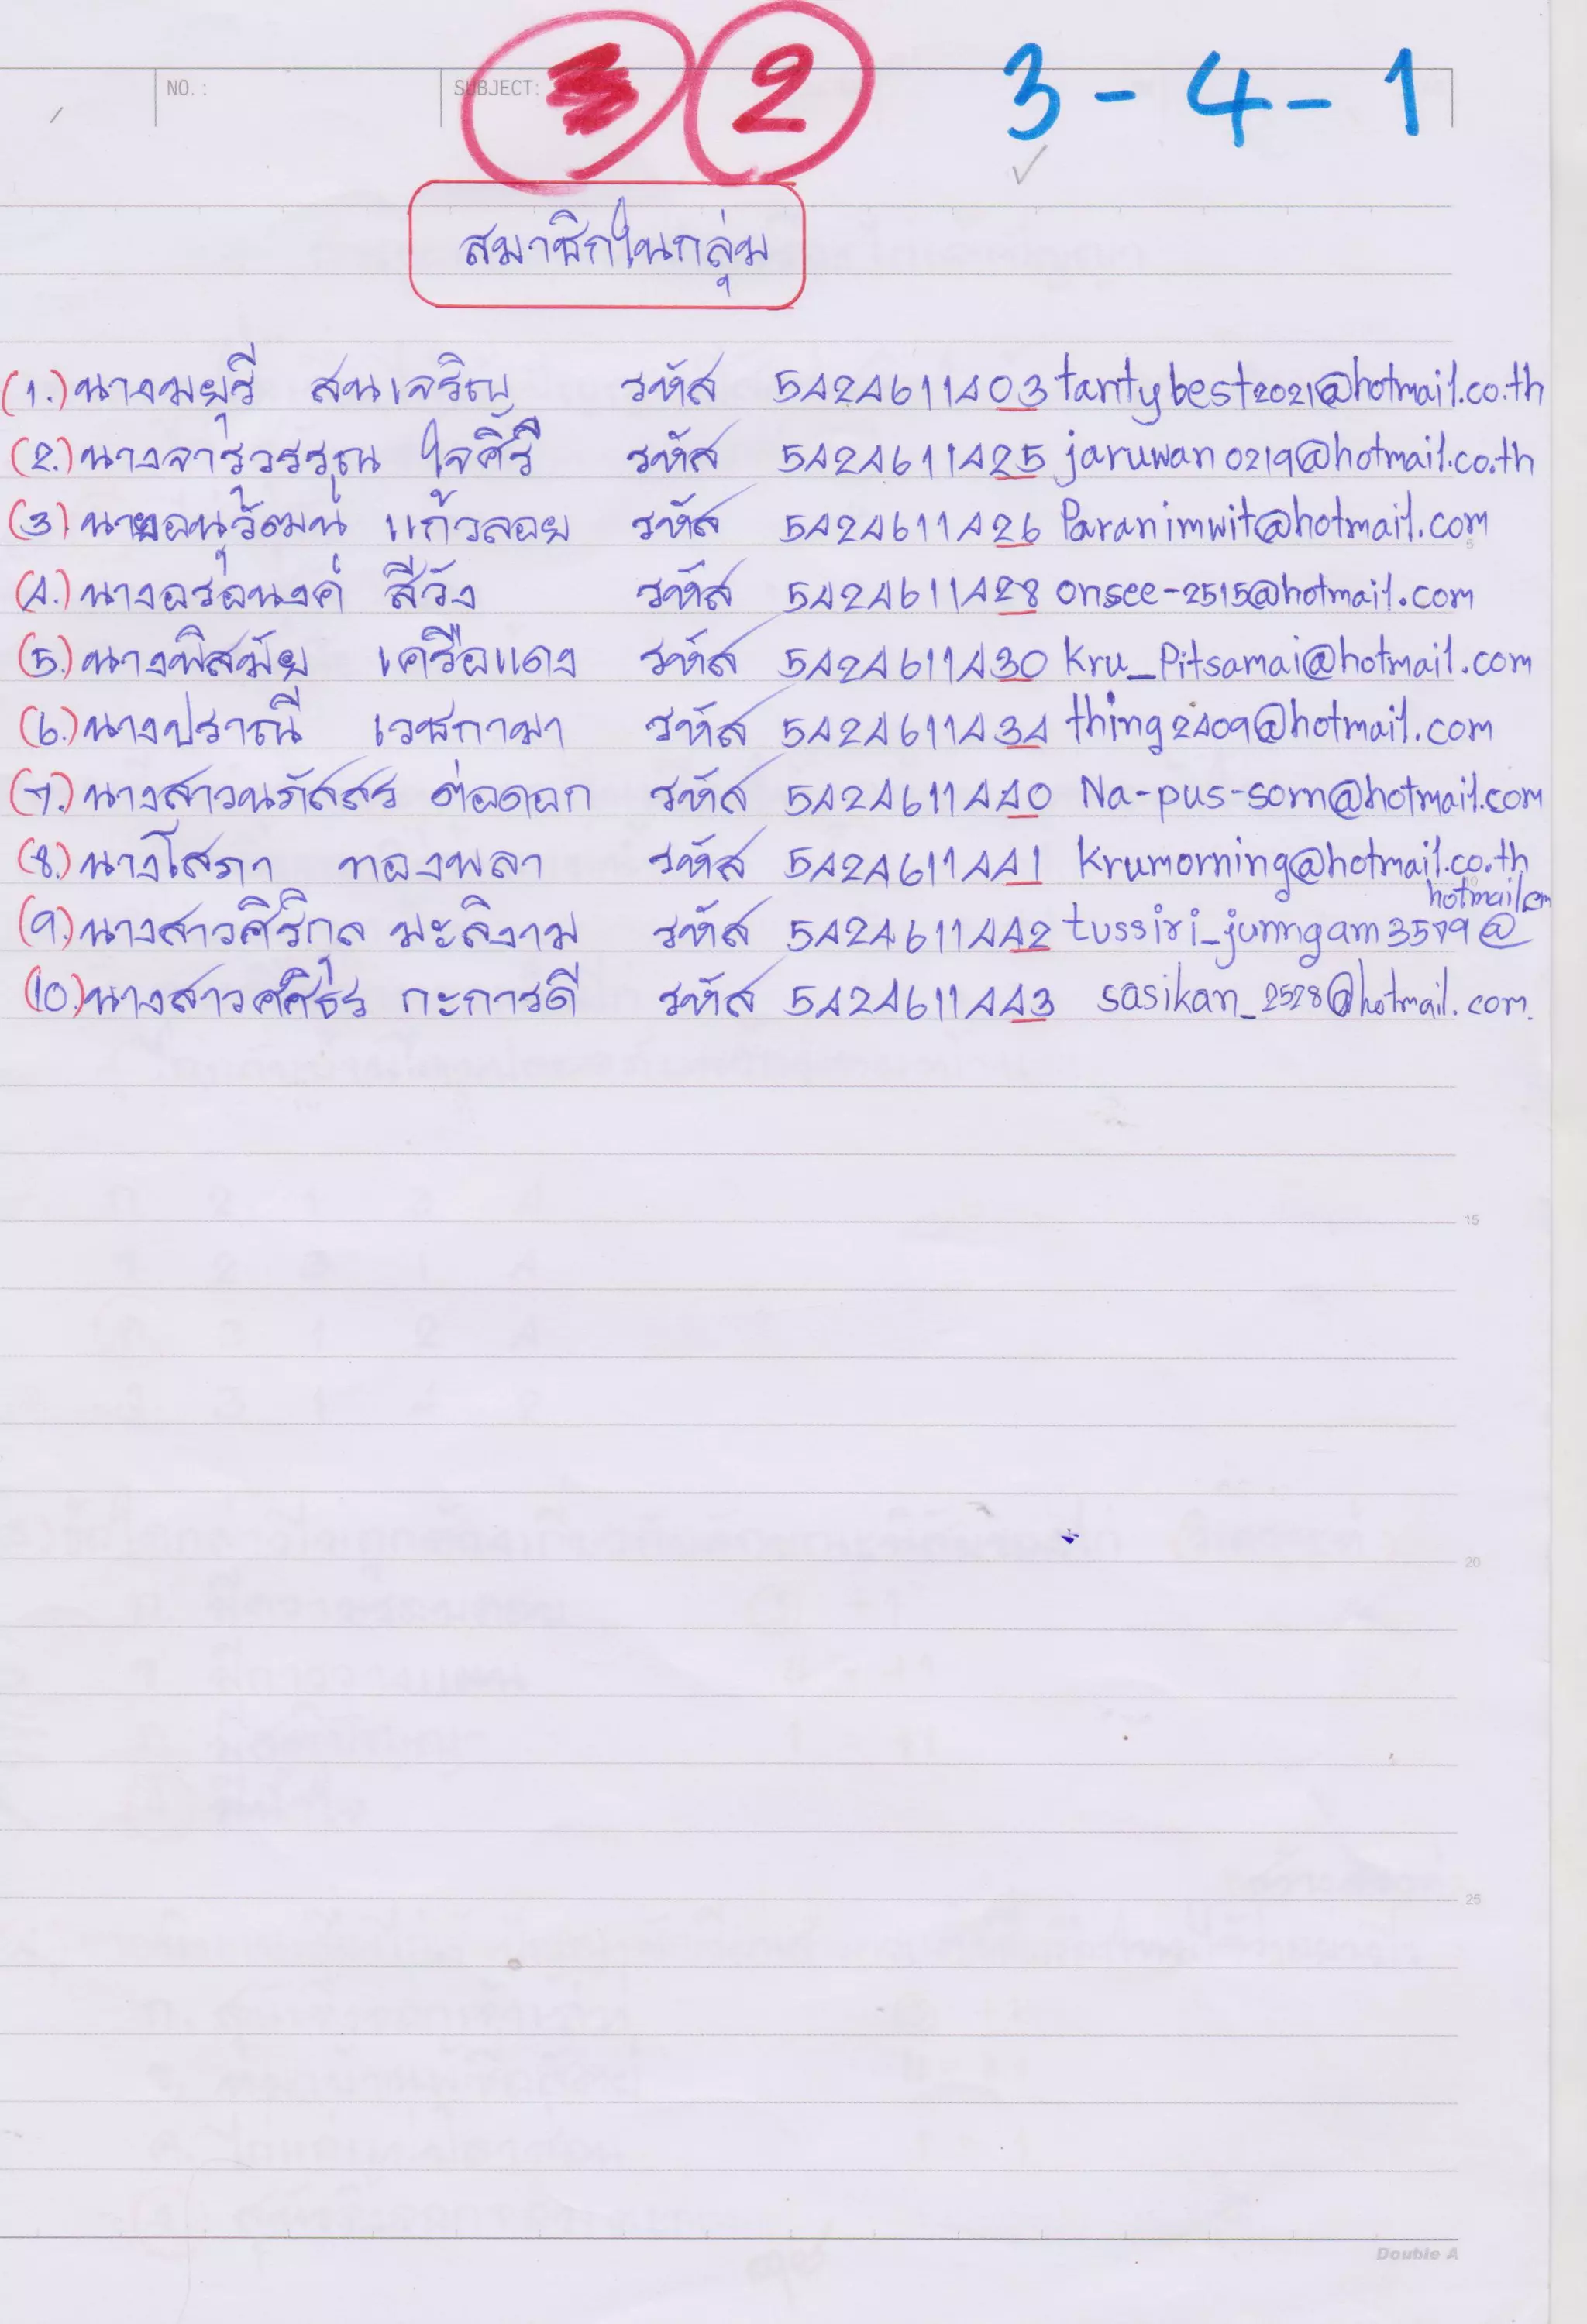 NO.: SUBJECT: 2 3-4-1
สมาชิกในกลุ่ม
(1.) นางมยุรี สนเจริญ รหัส 5424611403 tantybest2021@hotmail.co.th
(2.) นางจารุวรรณ ใจศิริ รหัส 5424611425 jaruwan0219@hotmail.co.th
(3) นายอนุวัฒน์ แก้วลอย รหัส 5424611426 Paranimwit@hotmail.com
5
(4.) นางอรอนงค์ สีวัง รหัส 5424611428 onsee-2515@hotmail.com
(5.) นางพิสมัย เครือแดง รหัส 5424611430 Kru_Pitsamai@hotmail.com
(6.) นางปราณี เวชกามา รหัส 5424611434 thing2409@hotmail.com
(7.) นางสาวนภัสสร ต่อดอก รหัส 5424611440 Na-pus-sorn@hotmail.com
(8.) นางโสภา ทองพลา รหัส 5424611441 Krumorning@hotmail.co.th
(9.) นางสาวศิริกุล มะลิงาม รหัส 5424611442 tussiri_jumngam3579@
hotmail.com
(10.) นางสาวศศิธร กะการดี รหัส 5424611443 sasikan_2528@hotmail.com.
15
20
25
Double A